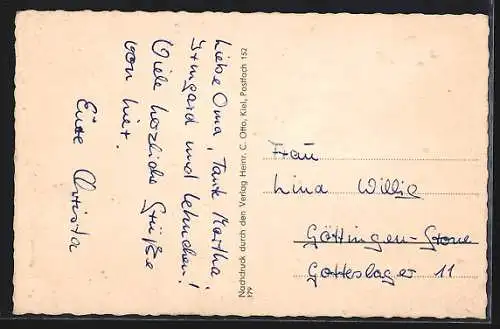 Liebe Oma, Tante Martha,
Irmgard und Lehnchen!
Viele herzliche Grüße
von hier.
Eure Christa
Nachdruck durch den Verlag Heinr. C. Otto, Kiel, Postfach 152
179
Frau
Lina Willig
Göttingen-Grone
Gotteslager 11